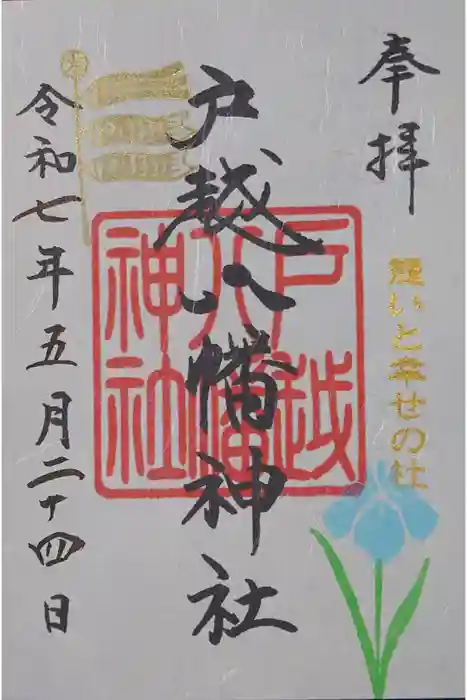 奉拝
憩いと幸せの社
戸越八幡神社
戸越
八幡
神社
令和七年五月二十四日